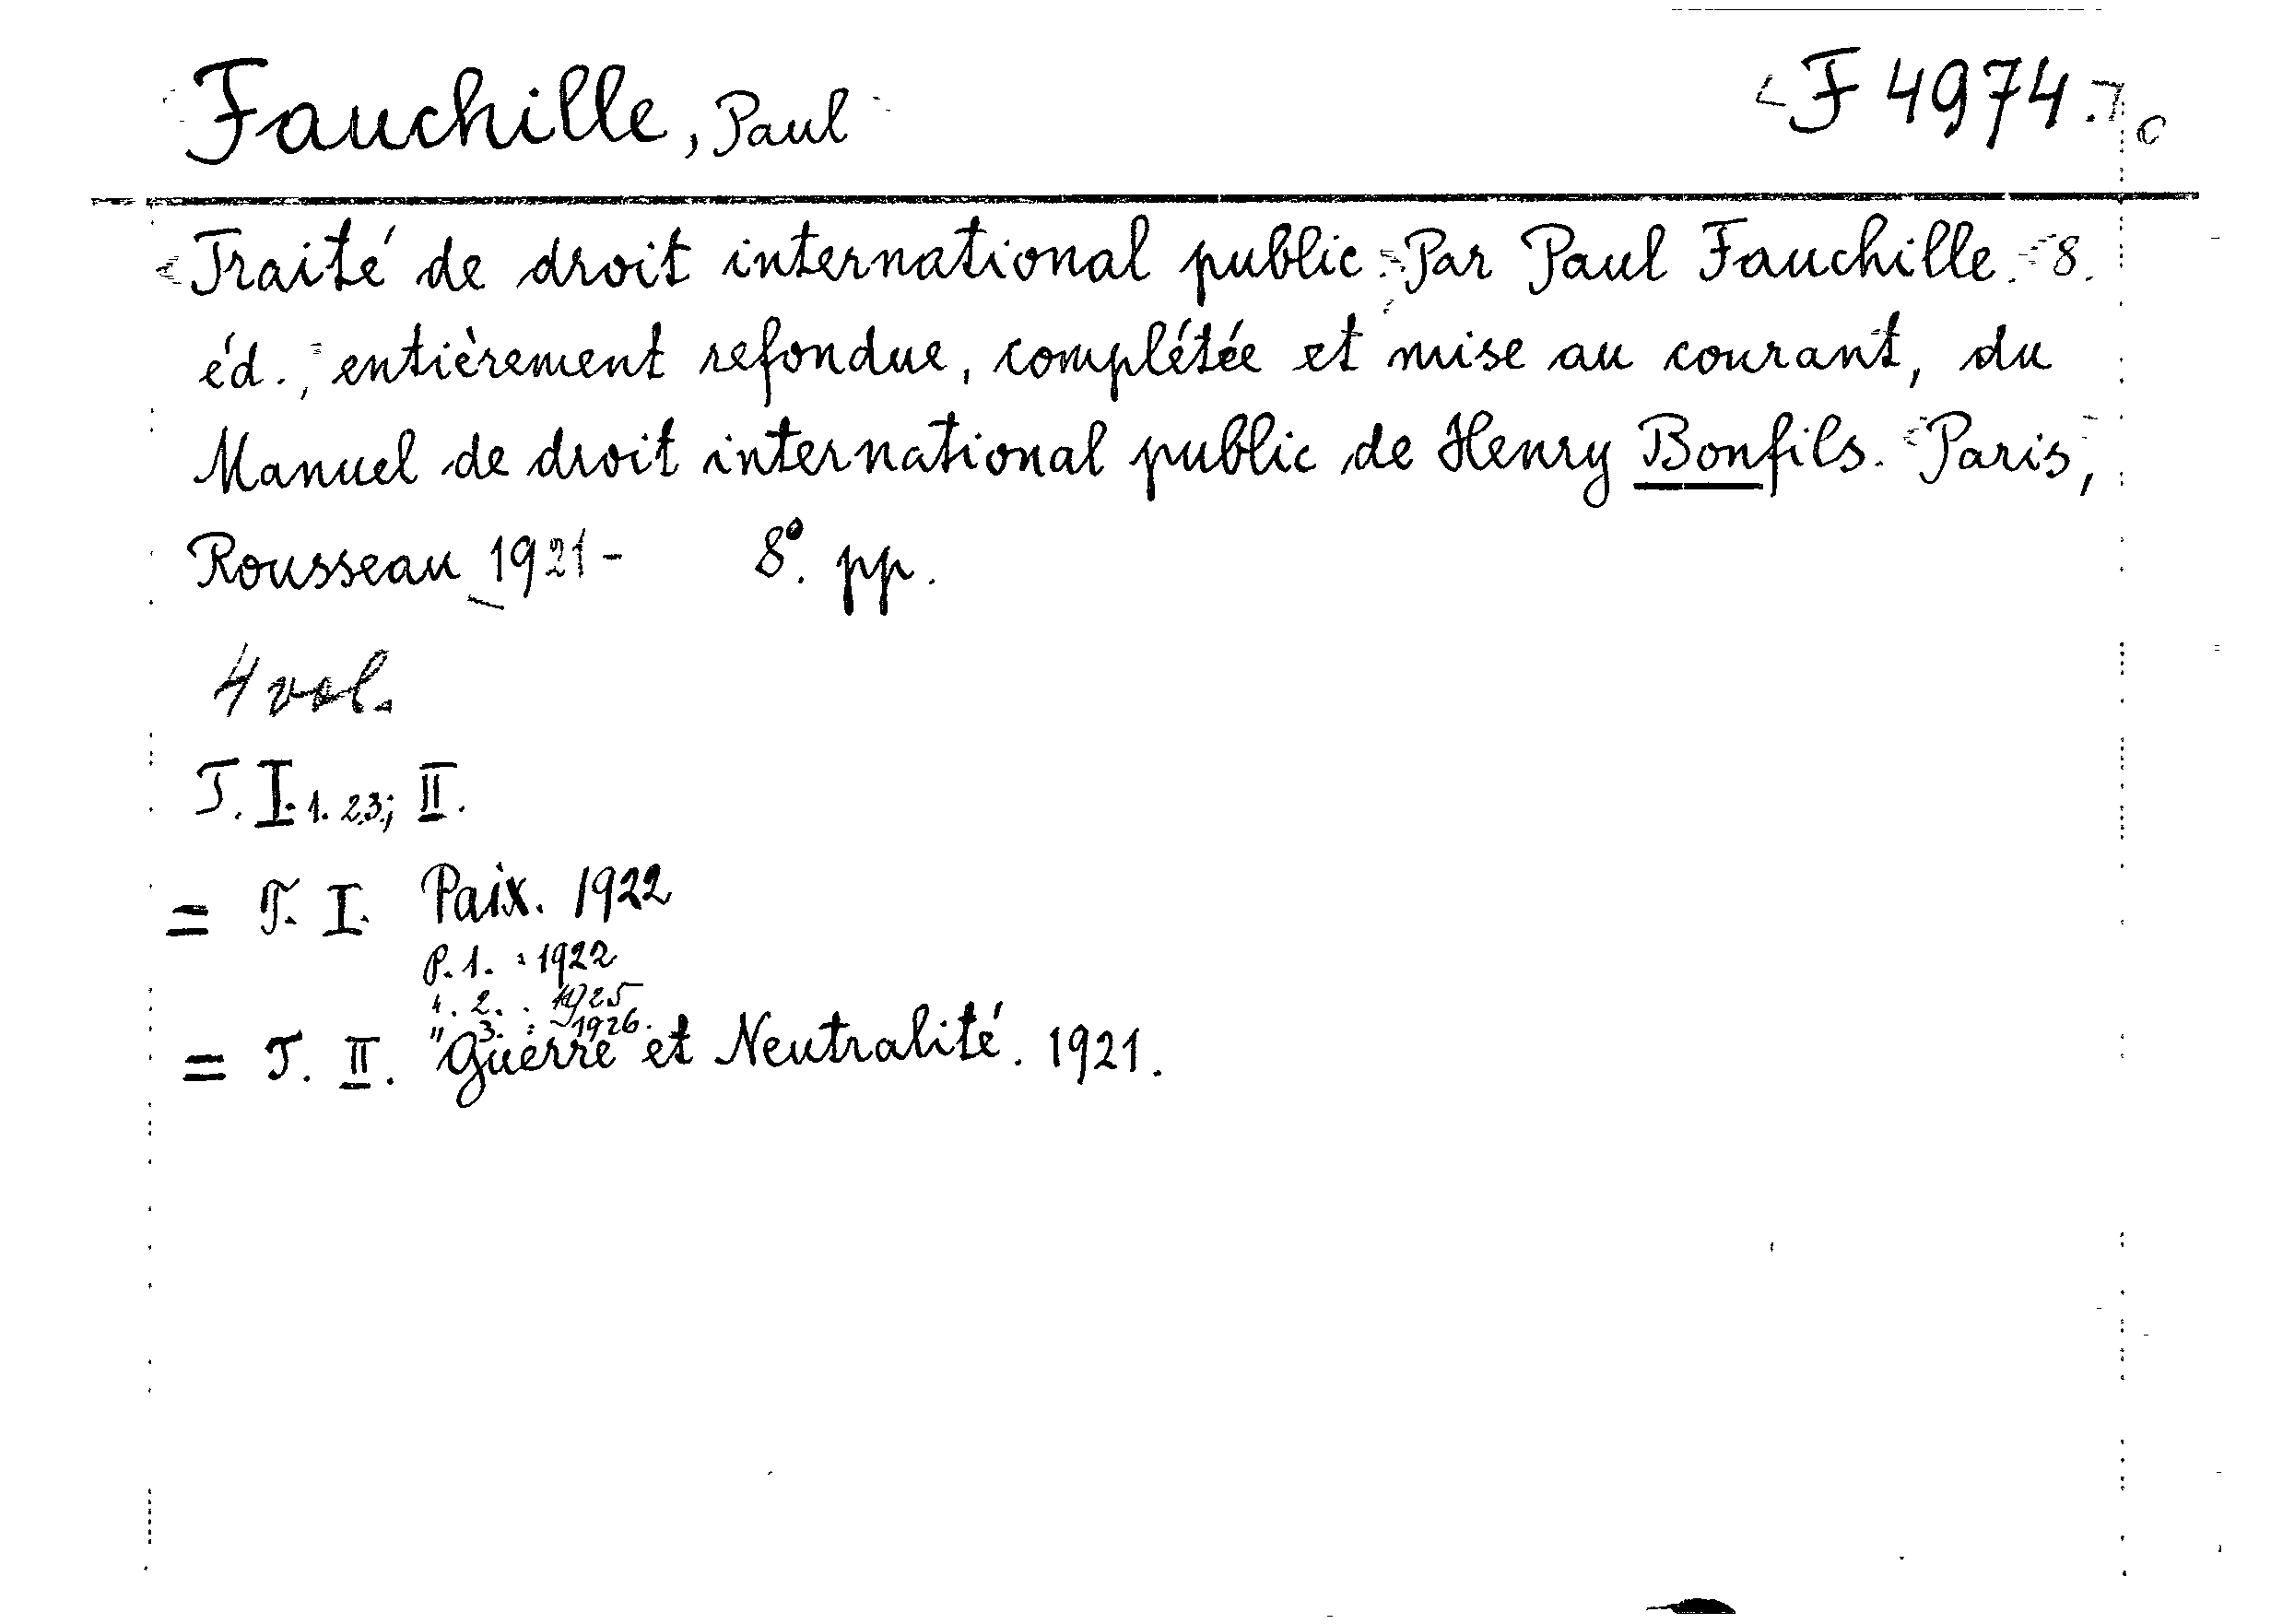 Fauchille, Paul
F 4974.
Traité de droit international public. Par Paul Fauchille. 8.
éd., entièrement refondue, complétée et mise au courant, du
Manuel de droit international public de Henry Bonfils. Paris,
Rousseau 1921- 8°. pp.
4 vol.
T. I. 1. 2.3.; II.
= T. I. Paix. 1922
P. 1. : 1922
". 2. : 1925
" 3. : 1926.
= T. II. Guerre et Neutralité. 1921.